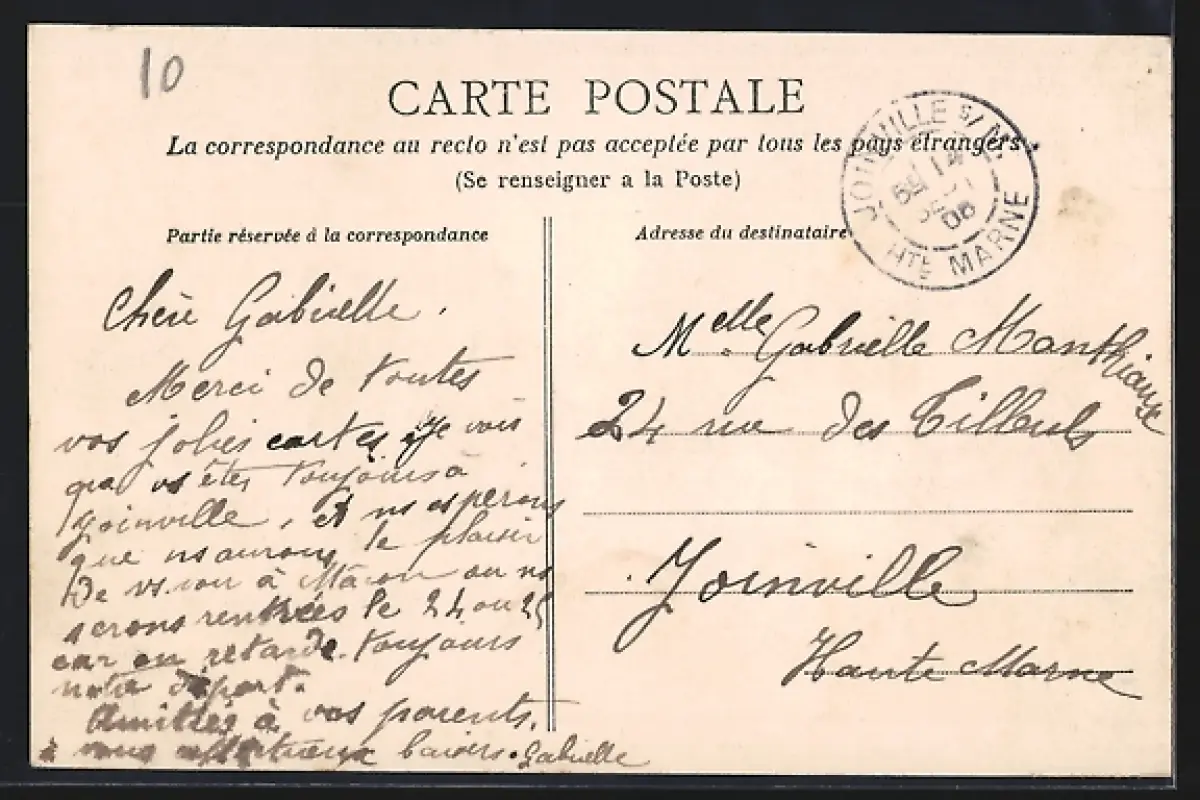 10
CARTE POSTALE
La correspondance au recto n'est pas acceptée par tous les pays étrangers.
(Se renseigner a la Poste)
JOINVILLE S/ M.
HTE MARNE
14
06
Partie réservée à la correspondance
Adresse du destinataire
Chère Gabrielle.
Merci de toutes
vos jolies cartes. Je vois
que vs êtes toujours à
Joinville, et ns espérons
que ns aurons le plaisir
de vs voir à Mâcon ou ns
serons rentrées le 24 ou 25
car on retarde toujours
notre départ.
Amitiés à vos parents.
à vous affectueux baisers. Gabrielle
Melle Gabrielle Manthiaux
24 rue des Tilleuls
Joinville
Haute Marne